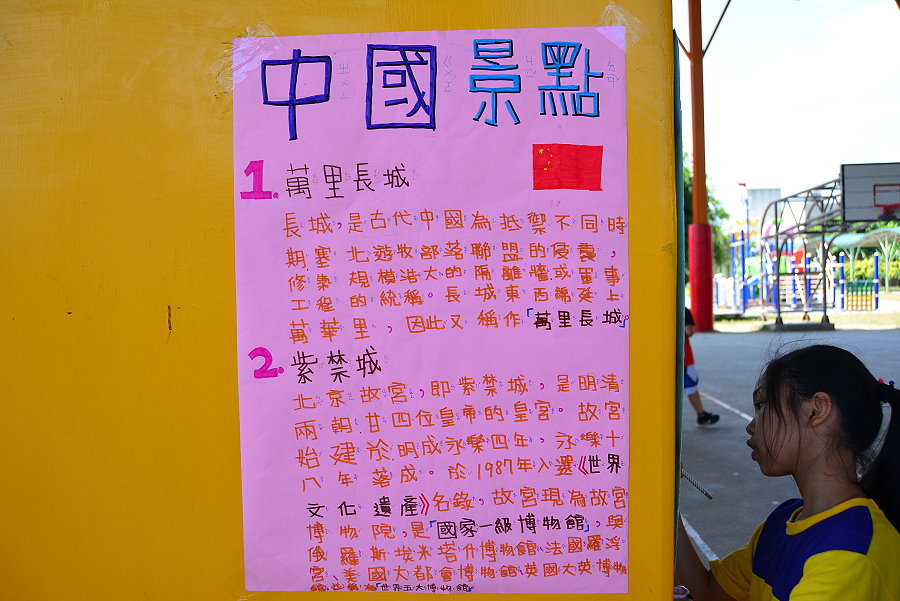 中國景點
1. 萬里長城
長城，是古代中國為抵禦不同時
期塞北遊牧部落聯盟的侵襲，
修築規模浩大的隔離牆或軍事
工程的統稱。長城東西綿延上
萬華里，因此又稱作「萬里長城」。
2. 紫禁城
北京故宮，即紫禁城，是明清
兩朝廿四位皇帝的皇宮。故宮
始建於明成永樂四年，永樂十
八年落成。於1987年入選《世界
文化遺產》名錄，故宮現為故宮
博物院，是「國家一級博物館」，與
俄羅斯埃米塔什博物館、法國羅浮
宮、美國大都會博物館、英國大英博物
「世界五大博物館。